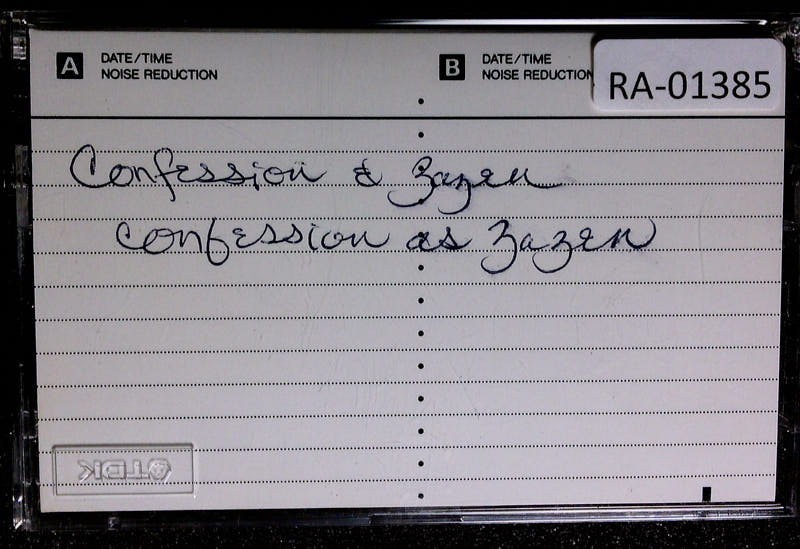 A DATE/TIME
NOISE REDUCTION
B DATE/TIME
NOISE REDUCTION
RA-01385
Confession & Zazen
Confession as Zazen
TDK